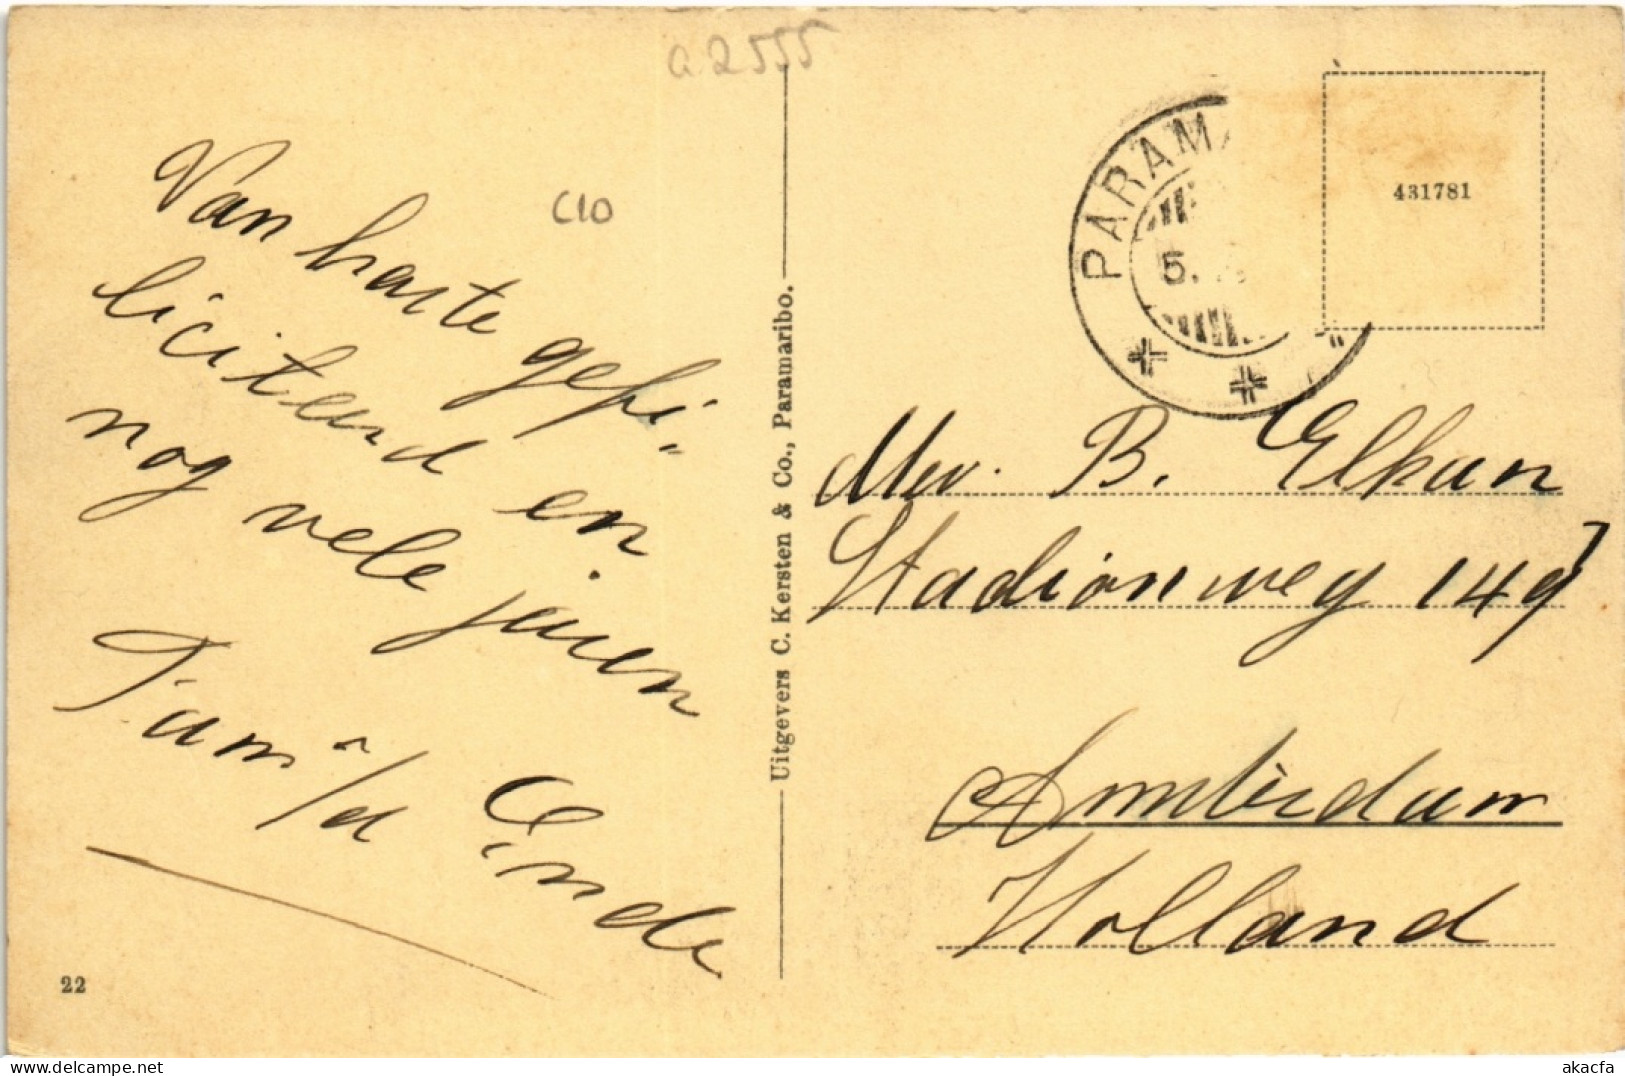 a 2555
C10
Van harte gefi=
liciteerd en
nog vele jaren
Fam v/d Linde
22
Uitgevers C. Kersten & Co., Paramaribo.
PARAMA
5.
431781
Mev. B. Elkan
Stadionweg 149
Amsterdam
Holland
akacfa